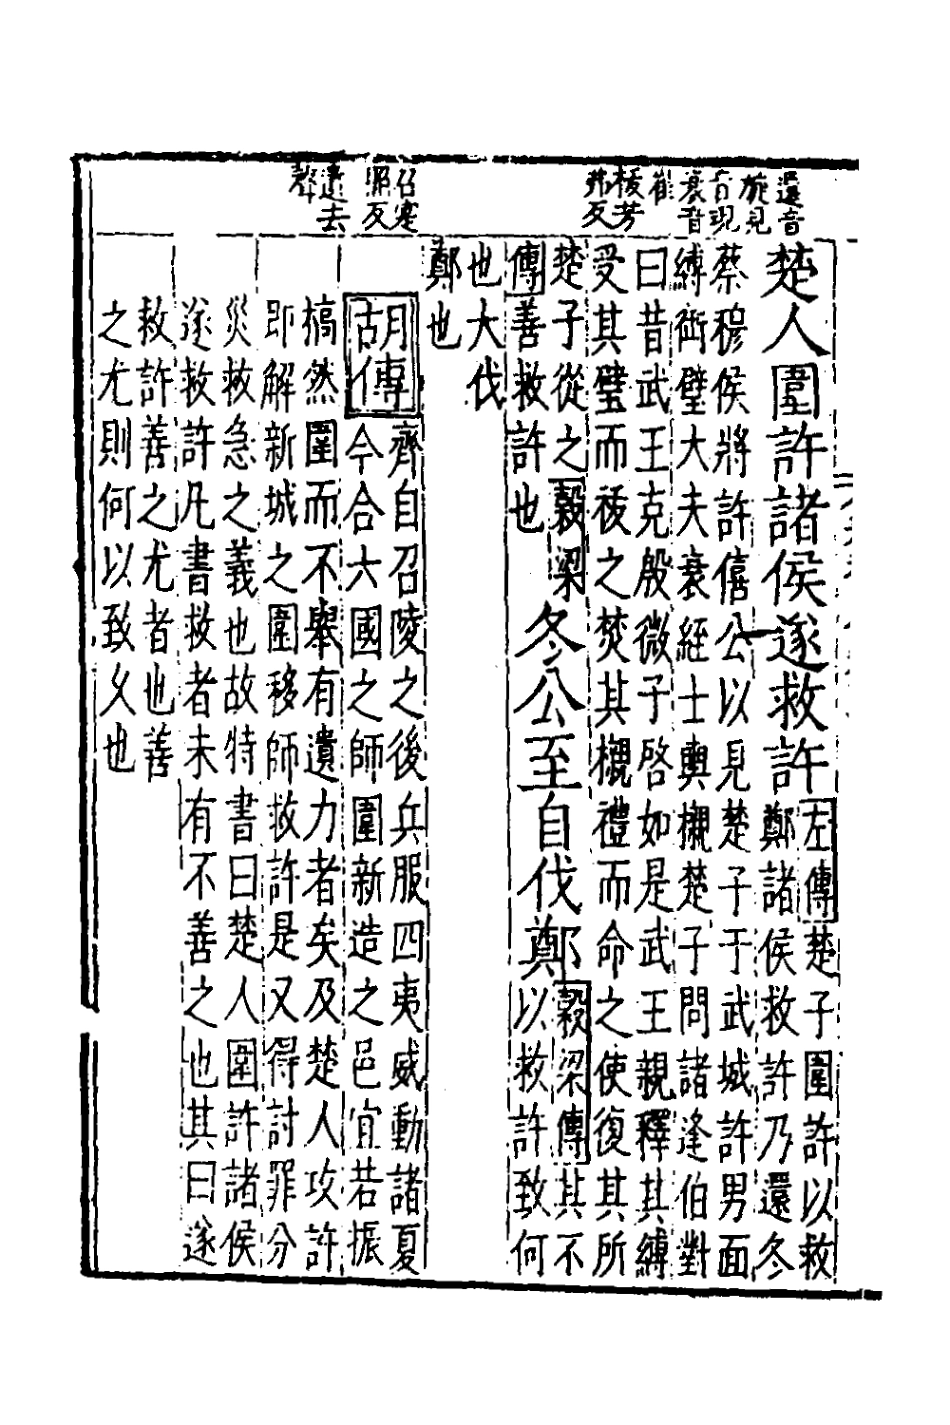 還音
旋見
音現
衰音
崔
祓芳
弗反
召寔
照反
遺去
聲
楚人圍許諸侯遂救許
左傳楚子圍許以救
鄭諸侯救許乃還冬
蔡穆侯將許僖公以見楚子于武城許男面
縛銜璧大夫衰絰士輿櫬楚子問諸逢伯對
曰昔武王克殷微子啓如是武王親釋其縛
受其璧而祓之焚其櫬禮而命之使復其所
楚子從之穀梁
傳善救許也
冬公至自伐鄭
穀梁傳其不
以救許致何
也大伐
鄭也
胡傳
齊自召陵之後兵服四夷威動諸夏
今合六國之師圍新造之邑宜若振
槁然圍而不舉有遺力者矣及楚人攻許
即解新城之圍移師救許是又得討罪分
災救急之義也故特書曰楚人圍許諸侯
遂救許凡書救者未有不善之也其曰遂
救許善之尤者也善
之尤則何以致久也